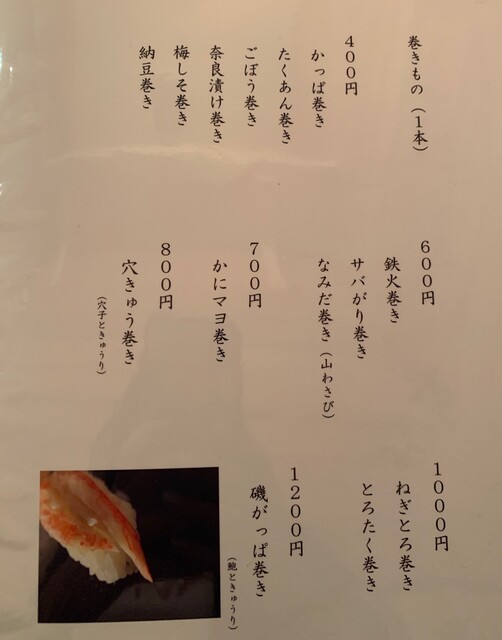 巻きもの（1本）
400円
かっぱ巻き
たくあん巻き
ごぼう巻き
奈良漬け巻き
梅しそ巻き
納豆巻き
600円
鉄火巻き
サバがり巻き
なみだ巻き（山わさび）
700円
かにマヨ巻き
800円
穴きゅう巻き
（穴子ときゅうり）
1000円
ねぎとろ巻き
とろたく巻き
1200円
磯がっぱ巻き
（鮑ときゅうり）